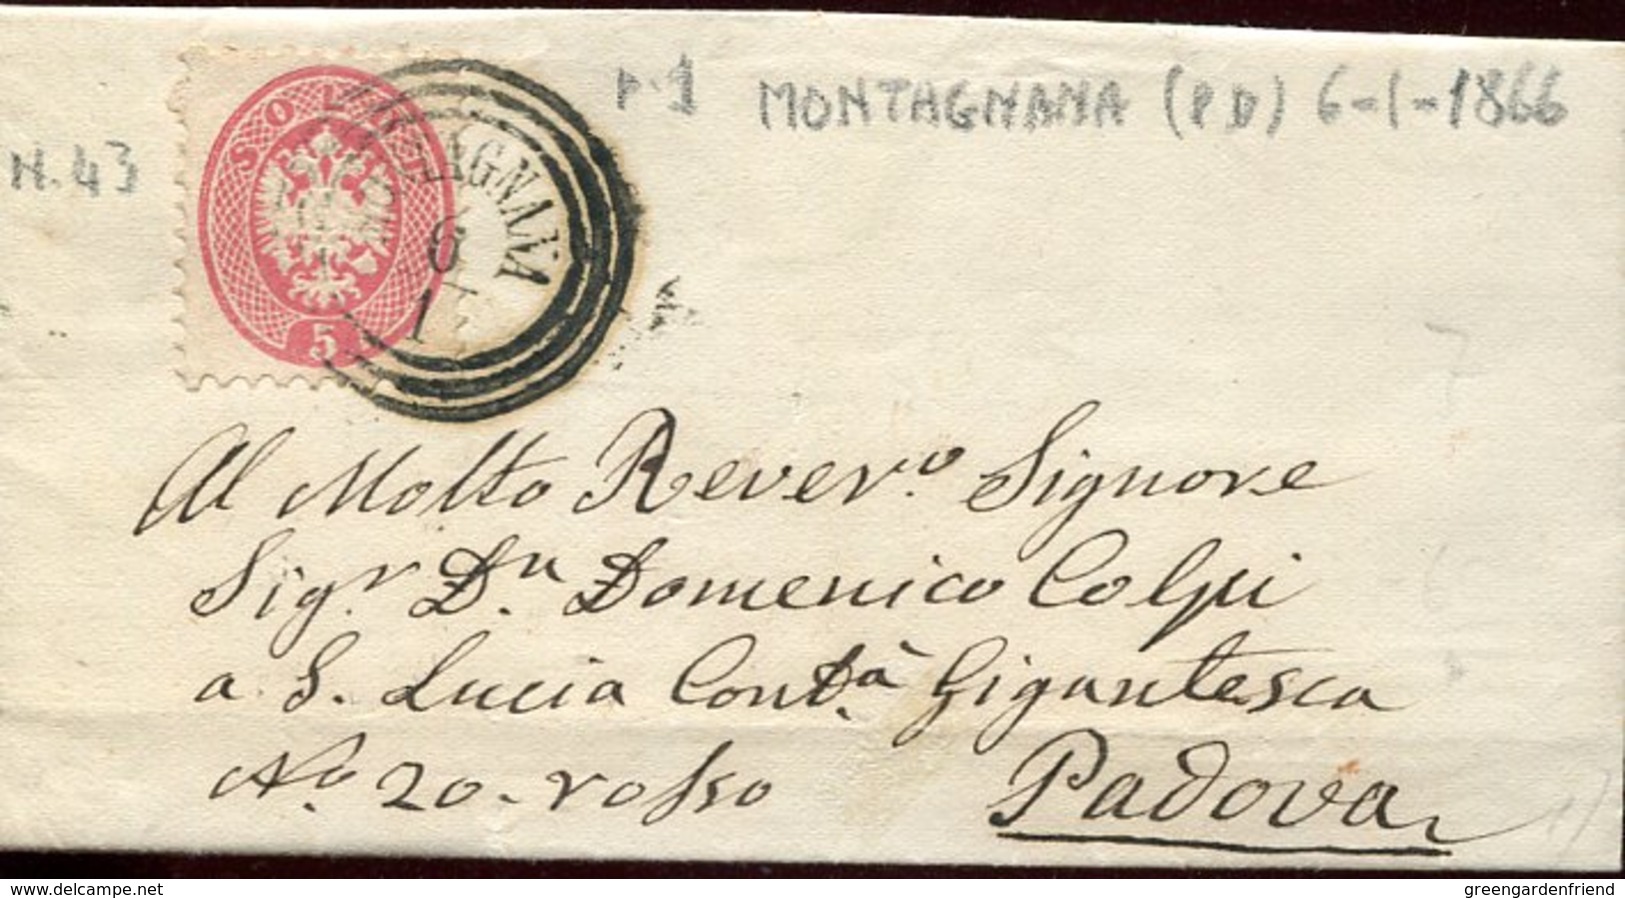 P.1 MONTAGNANA (PD) 6-1-1866
N. 43
SOLDI
5
AGNANA
6
1
Al Molto Rever.o Signore
Sig.r D.n Domenico Colpi
a S. Lucia Cont.à Gigantesca
No 20. rosso
Padova
www.delcampe.net
greengardenfriend